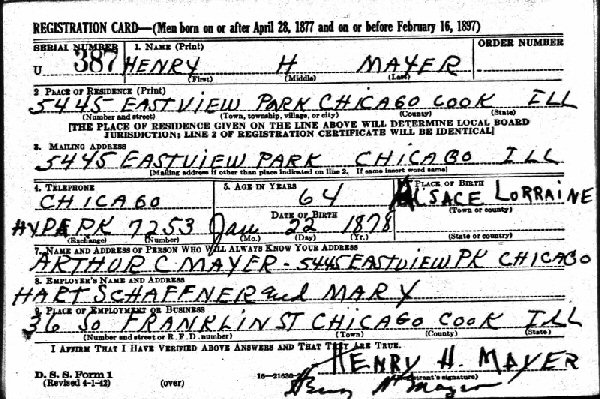 REGISTRATION CARD—(Men born on or after April 28, 1877 and on or before February 16, 1897)
SERIAL NUMBER 1. NAME (Print) ORDER NUMBER
U 387 HENRY H MAYER
(First) (Middle) (Last)
2. PLACE OF RESIDENCE (Print)
5445 EASTVIEW PARK CHICAGO COOK ILL
(Number and street) (Town, township, village, or city) (County) (State)
[THE PLACE OF RESIDENCE GIVEN ON THE LINE ABOVE WILL DETERMINE LOCAL BOARD
JURISDICTION; LINE 2 OF REGISTRATION CERTIFICATE WILL BE IDENTICAL]
3. MAILING ADDRESS
5445 EASTVIEW PARK CHICAGO ILL
[Mailing address if other than place indicated on line 2. If same insert word same]
4. TELEPHONE 5. AGE IN YEARS PLACE OF BIRTH
CHICAGO 64 ALSACE LORRAINE
DATE OF BIRTH (Town or county)
HYPARK 7253 Jan 22 1878
(Exchange) (Number) (Mo.) (Day) (Yr.) (State or country)
7. NAME AND ADDRESS OF PERSON WHO WILL ALWAYS KNOW YOUR ADDRESS
ARTHUR C MAYER - 5445 EASTVIEW PK CHICAGO
8. EMPLOYER'S NAME AND ADDRESS
HART SCHAFFNER and MARX
9. PLACE OF EMPLOYMENT OR BUSINESS
36 SO FRANKLIN ST CHICAGO COOK ILL
(Number and street or R. F. D. number) (Town) (County) (State)
I AFFIRM THAT I HAVE VERIFIED ABOVE ANSWERS AND THAT THEY ARE TRUE.
HENRY H. MAYER
D. S. S. Form 1
(Revised 4-1-42) (over) (Registrant's signature)
Henry H Mayer